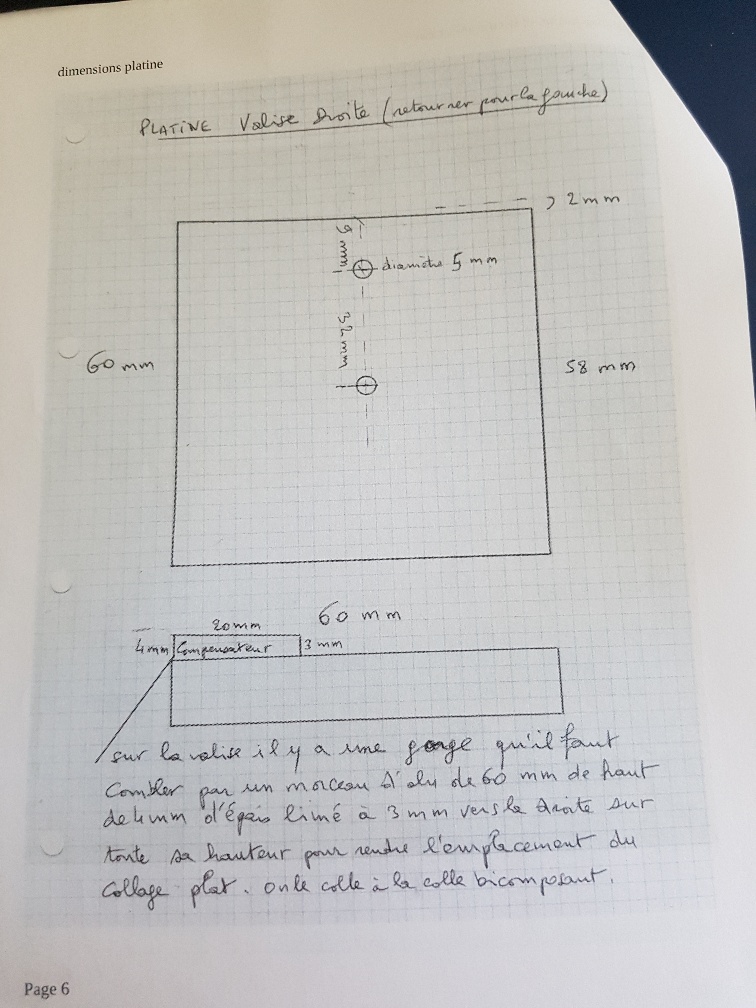 dimensions platine
PLATINE Valise Droite (retourner pour la gauche)
2 mm
9 mm
diamètre 5 mm
32 mm
60 mm
58 mm
60 mm
20 mm
4 mm
Compensateur
3 mm
sur la valise il y a une gorge qu'il faut
Combler par un morceau d'alu de 60 mm de haut
de 4 mm d'épais limé à 3 mm vers la droite sur
toute sa hauteur pour rendre l'emplacement du
Collage plat. on le colle à la colle bicomposant.
Page 6